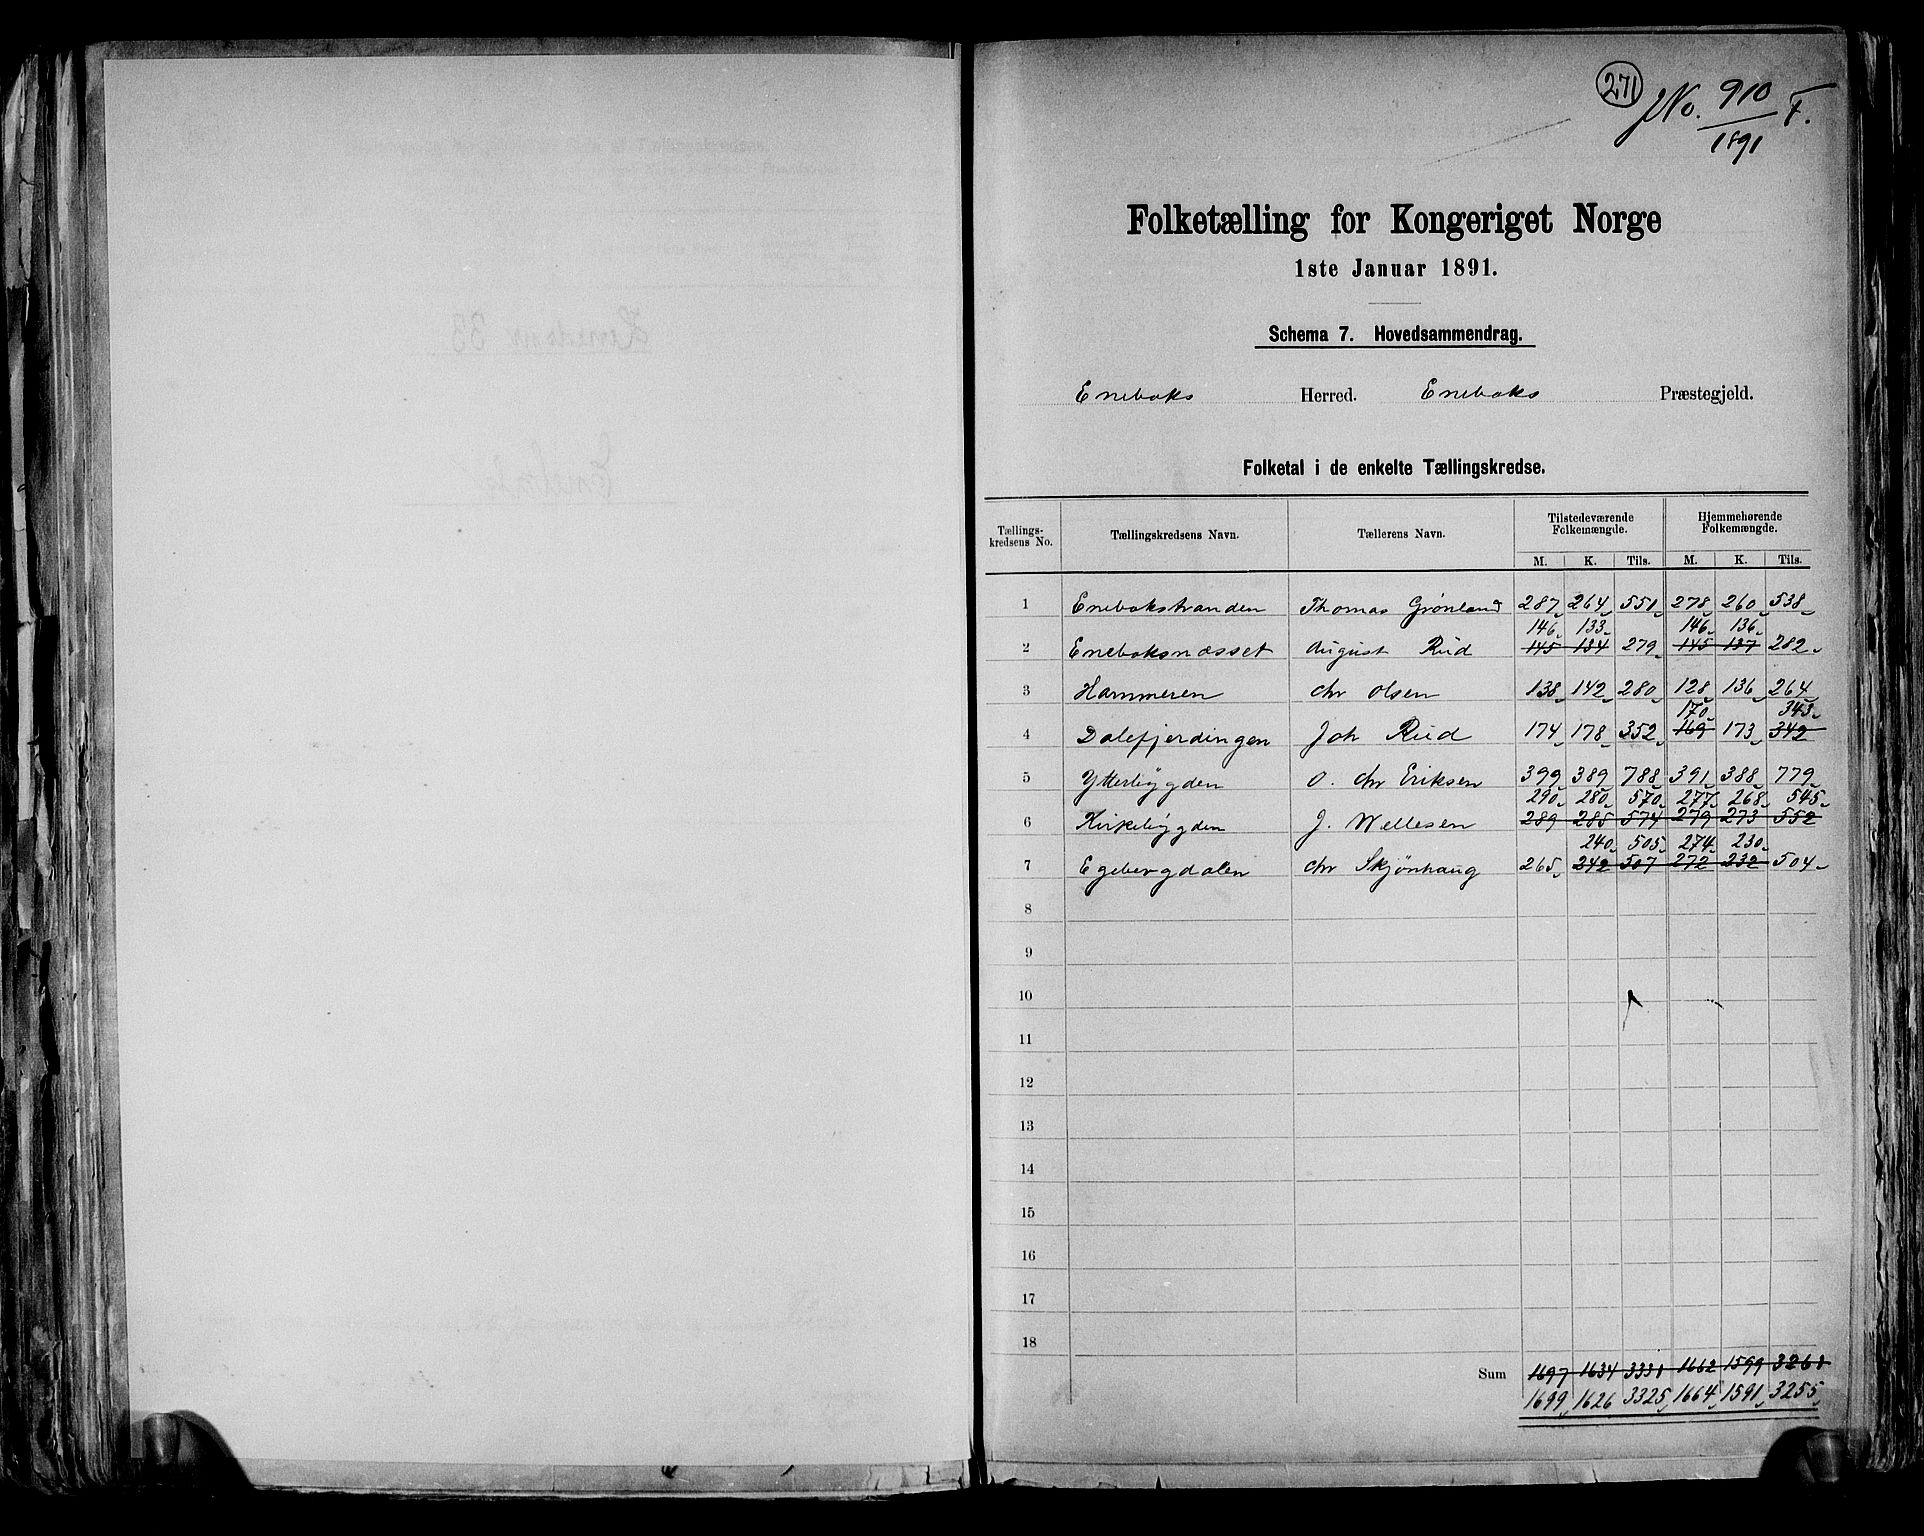 271
JNo. 910 F.
1891
Folketælling for Kongeriget Norge
1ste Januar 1891.
Schema 7. Hovedsammendrag.
Eneboks Herred. Eneboks Præstegjeld.
Folketal i de enkelte Tællingskredse.
Tællings-kredsens No. Tællingskredsens Navn. Tællerens Navn. Tilstedeværende Folkemængde. Hjemmehørende Folkemængde.
M. K. Tils. M. K. Tils.
1 Enebokstranden Thomas Grönland 287 264 551 278 260 538
146 133 146 136
2 Eneboksnæsset August Rud 145 134 279 145 137 282
3 Hammeren Chr Olsen 138 142 280 128 136 264
170 343
4 Dalefjerdingen Joh Rud 174 178 352 169 173 342
5 Ytterbygden O. Chr Eriksen 399 389 788 391 388 779
290 280 570 277 268 545
6 Kirkebygden J. Wellesen 289 285 574 279 273 552
240 505 274 230
7 Egebergdalen Chr Skjønhaug 265 242 507 272 232 504
8
9
10
11
12
13
14
15
16
17
18
Sum 1697 1634 3331 1662 1599 3261
1699 1626 3325 1664 1591 3255